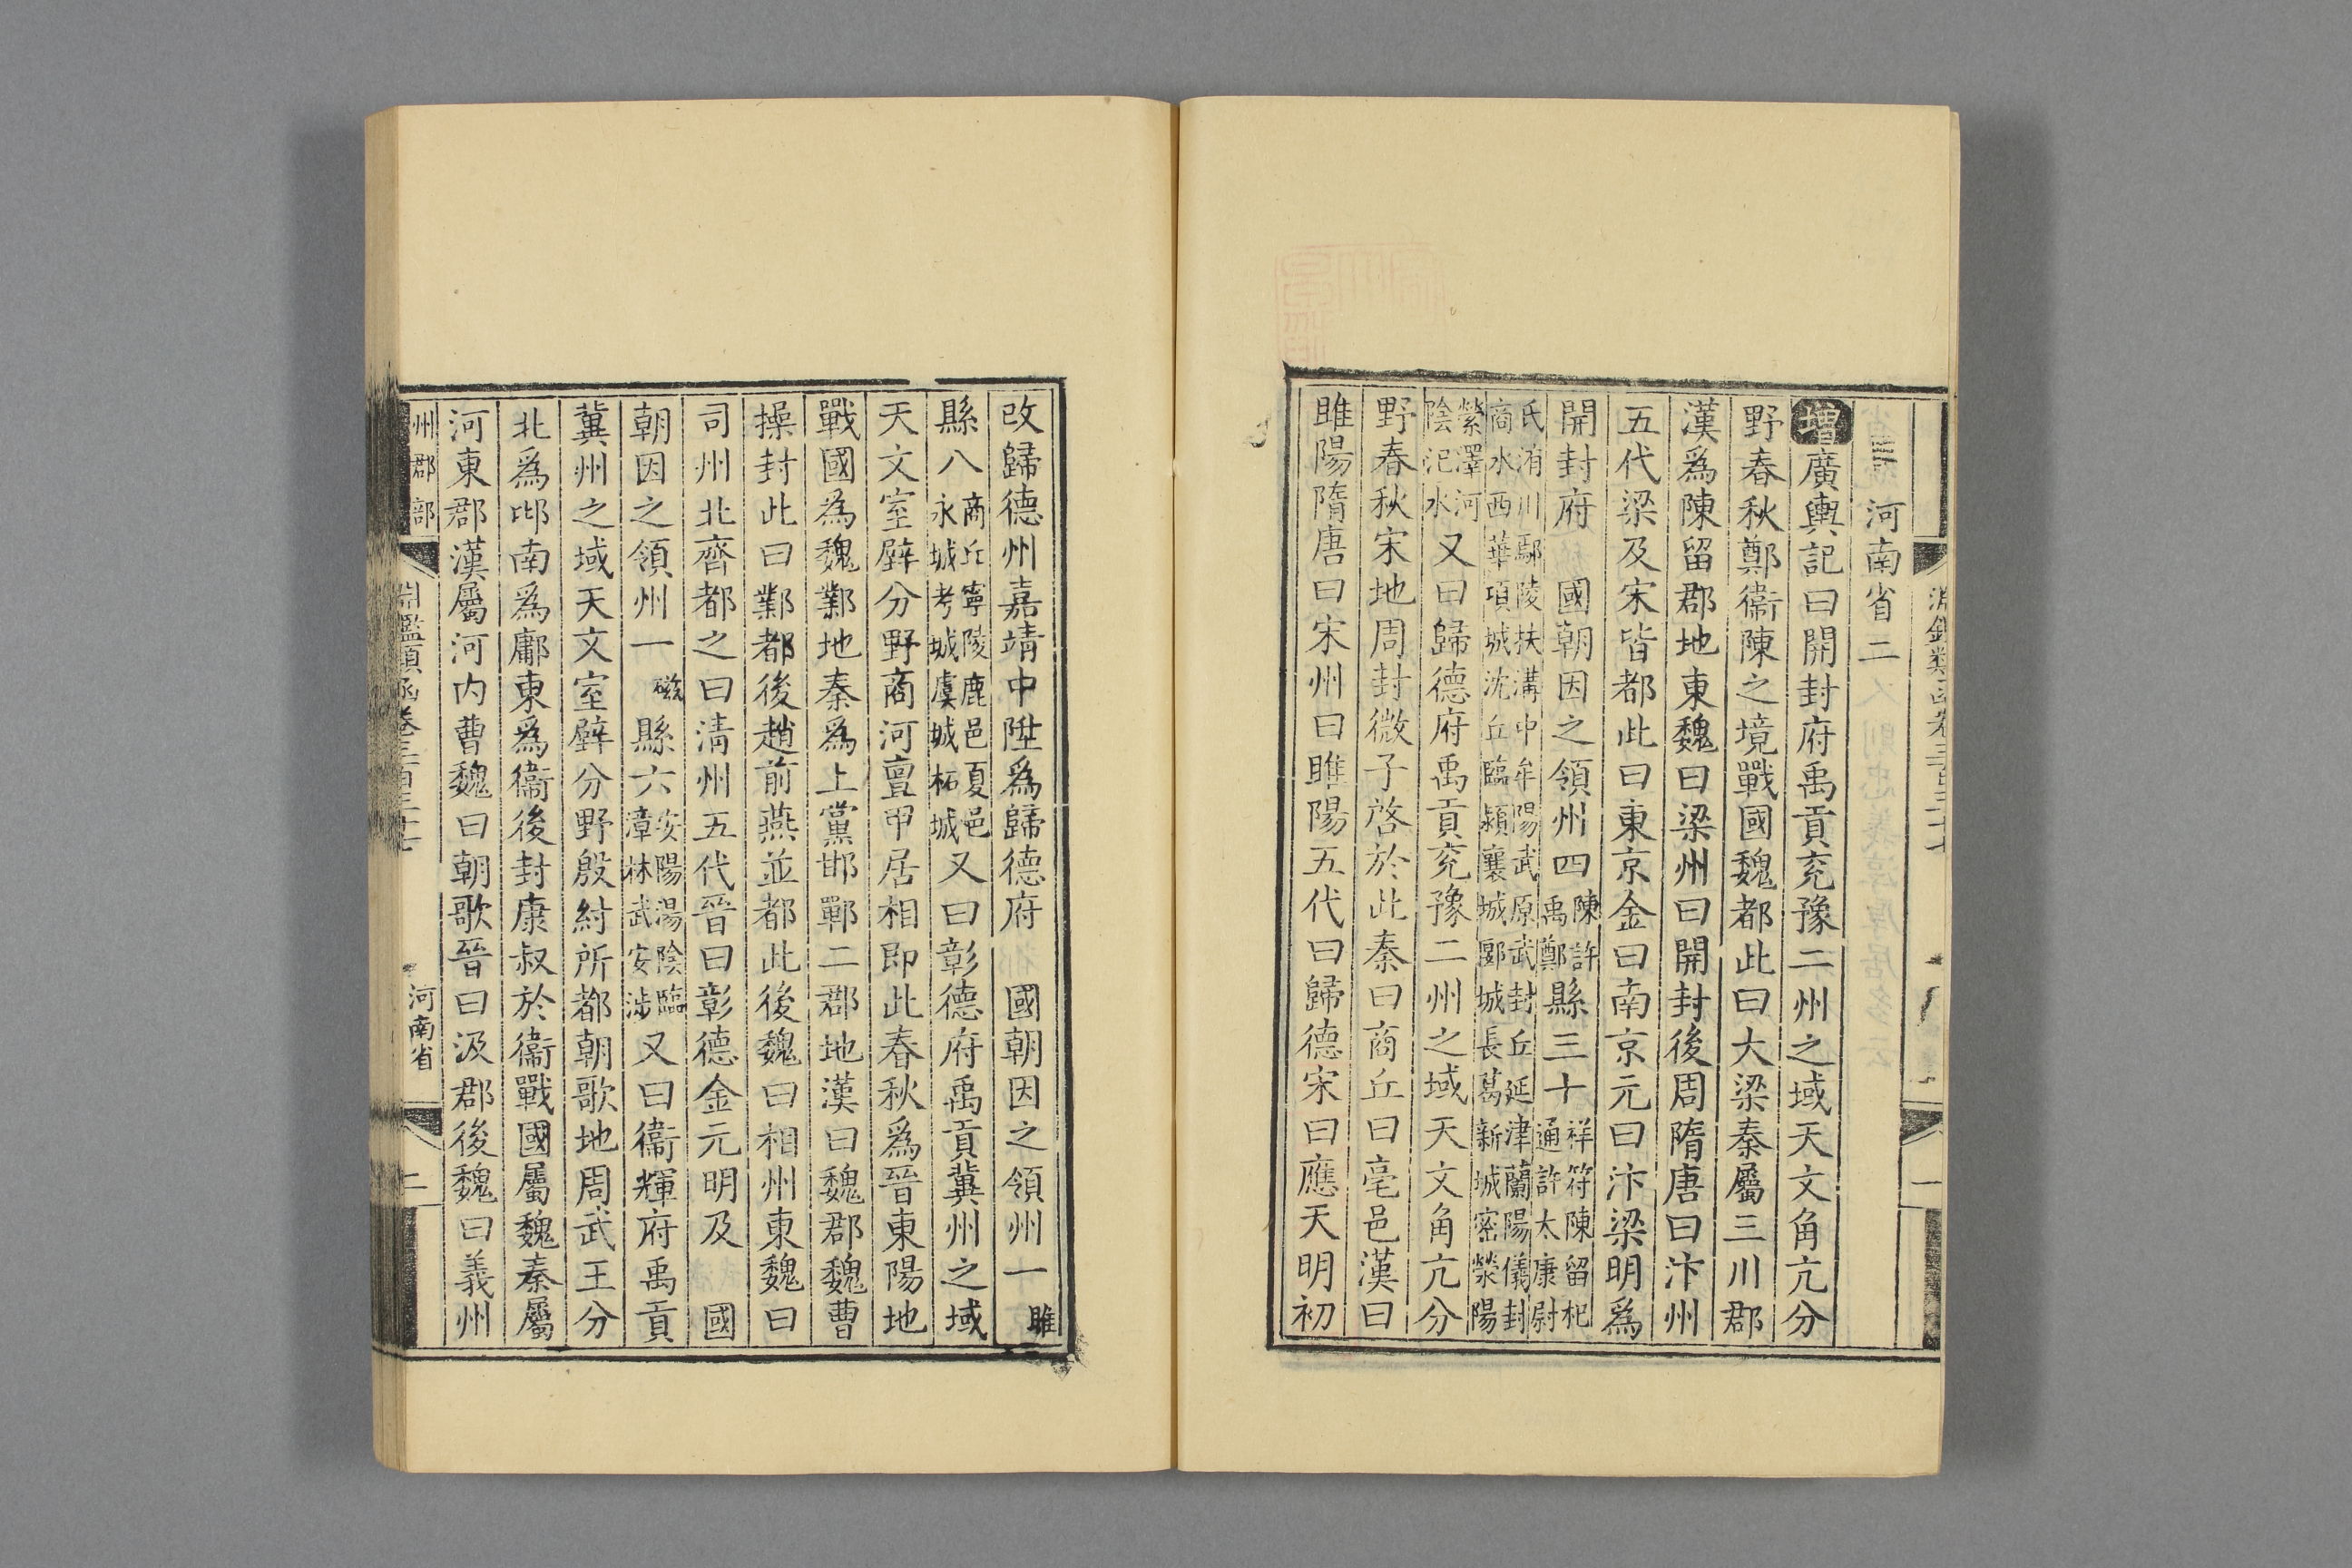 河南省二
增廣輿記曰開封府禹貢兖豫二州之域天文角亢分
野春秋鄭衞陳之境戰國魏都此曰大梁秦屬三川郡
漢爲陳留郡地東魏曰梁州曰開封後周隋唐曰汴州
五代梁及宋皆都此曰東京金曰南京元曰汴梁明爲
開封府 國朝因之領州四陳許禹鄭縣三十祥符陳留杞通許太康尉
氏洧川鄢陵扶溝中牟陽武原武封丘延津蘭陽儀封商水西華項城沈丘臨潁襄城郾城長葛新城密滎陽
滎澤河陰汜水又曰歸德府禹貢兖豫二州之域天文角亢分
野春秋宋地周封微子啓於此秦曰商丘曰亳邑漢曰
睢陽隋唐曰宋州曰睢陽五代曰歸德宋曰應天明初
改歸德州嘉靖中陞爲歸德府 國朝因之領州一睢
縣八商丘寧陵鹿邑夏邑永城考城虞城柘城又曰彰德府禹貢冀州之域
天文室壁分野商河亶甲居相即此春秋爲晉東陽地
戰國爲魏鄴地秦爲上黨邯鄲二郡地漢曰魏郡魏曹
操封此曰鄴都後趙前燕並都此後魏曰相州東魏曰
司州北齊都之曰清州五代晉曰彰德金元明及 國
朝因之領州一磁縣六安陽湯陰臨漳林武安涉又曰衞輝府禹貢
冀州之域天文室壁分野殷紂所都朝歌地周武王分
北爲邶南爲鄘東爲衞後封康叔於衞戰國屬魏秦屬
河東郡漢屬河内曹魏曰朝歌晉曰汲郡後魏曰義州
州郡部 淵鑑類函卷三百三十七 河南省 二